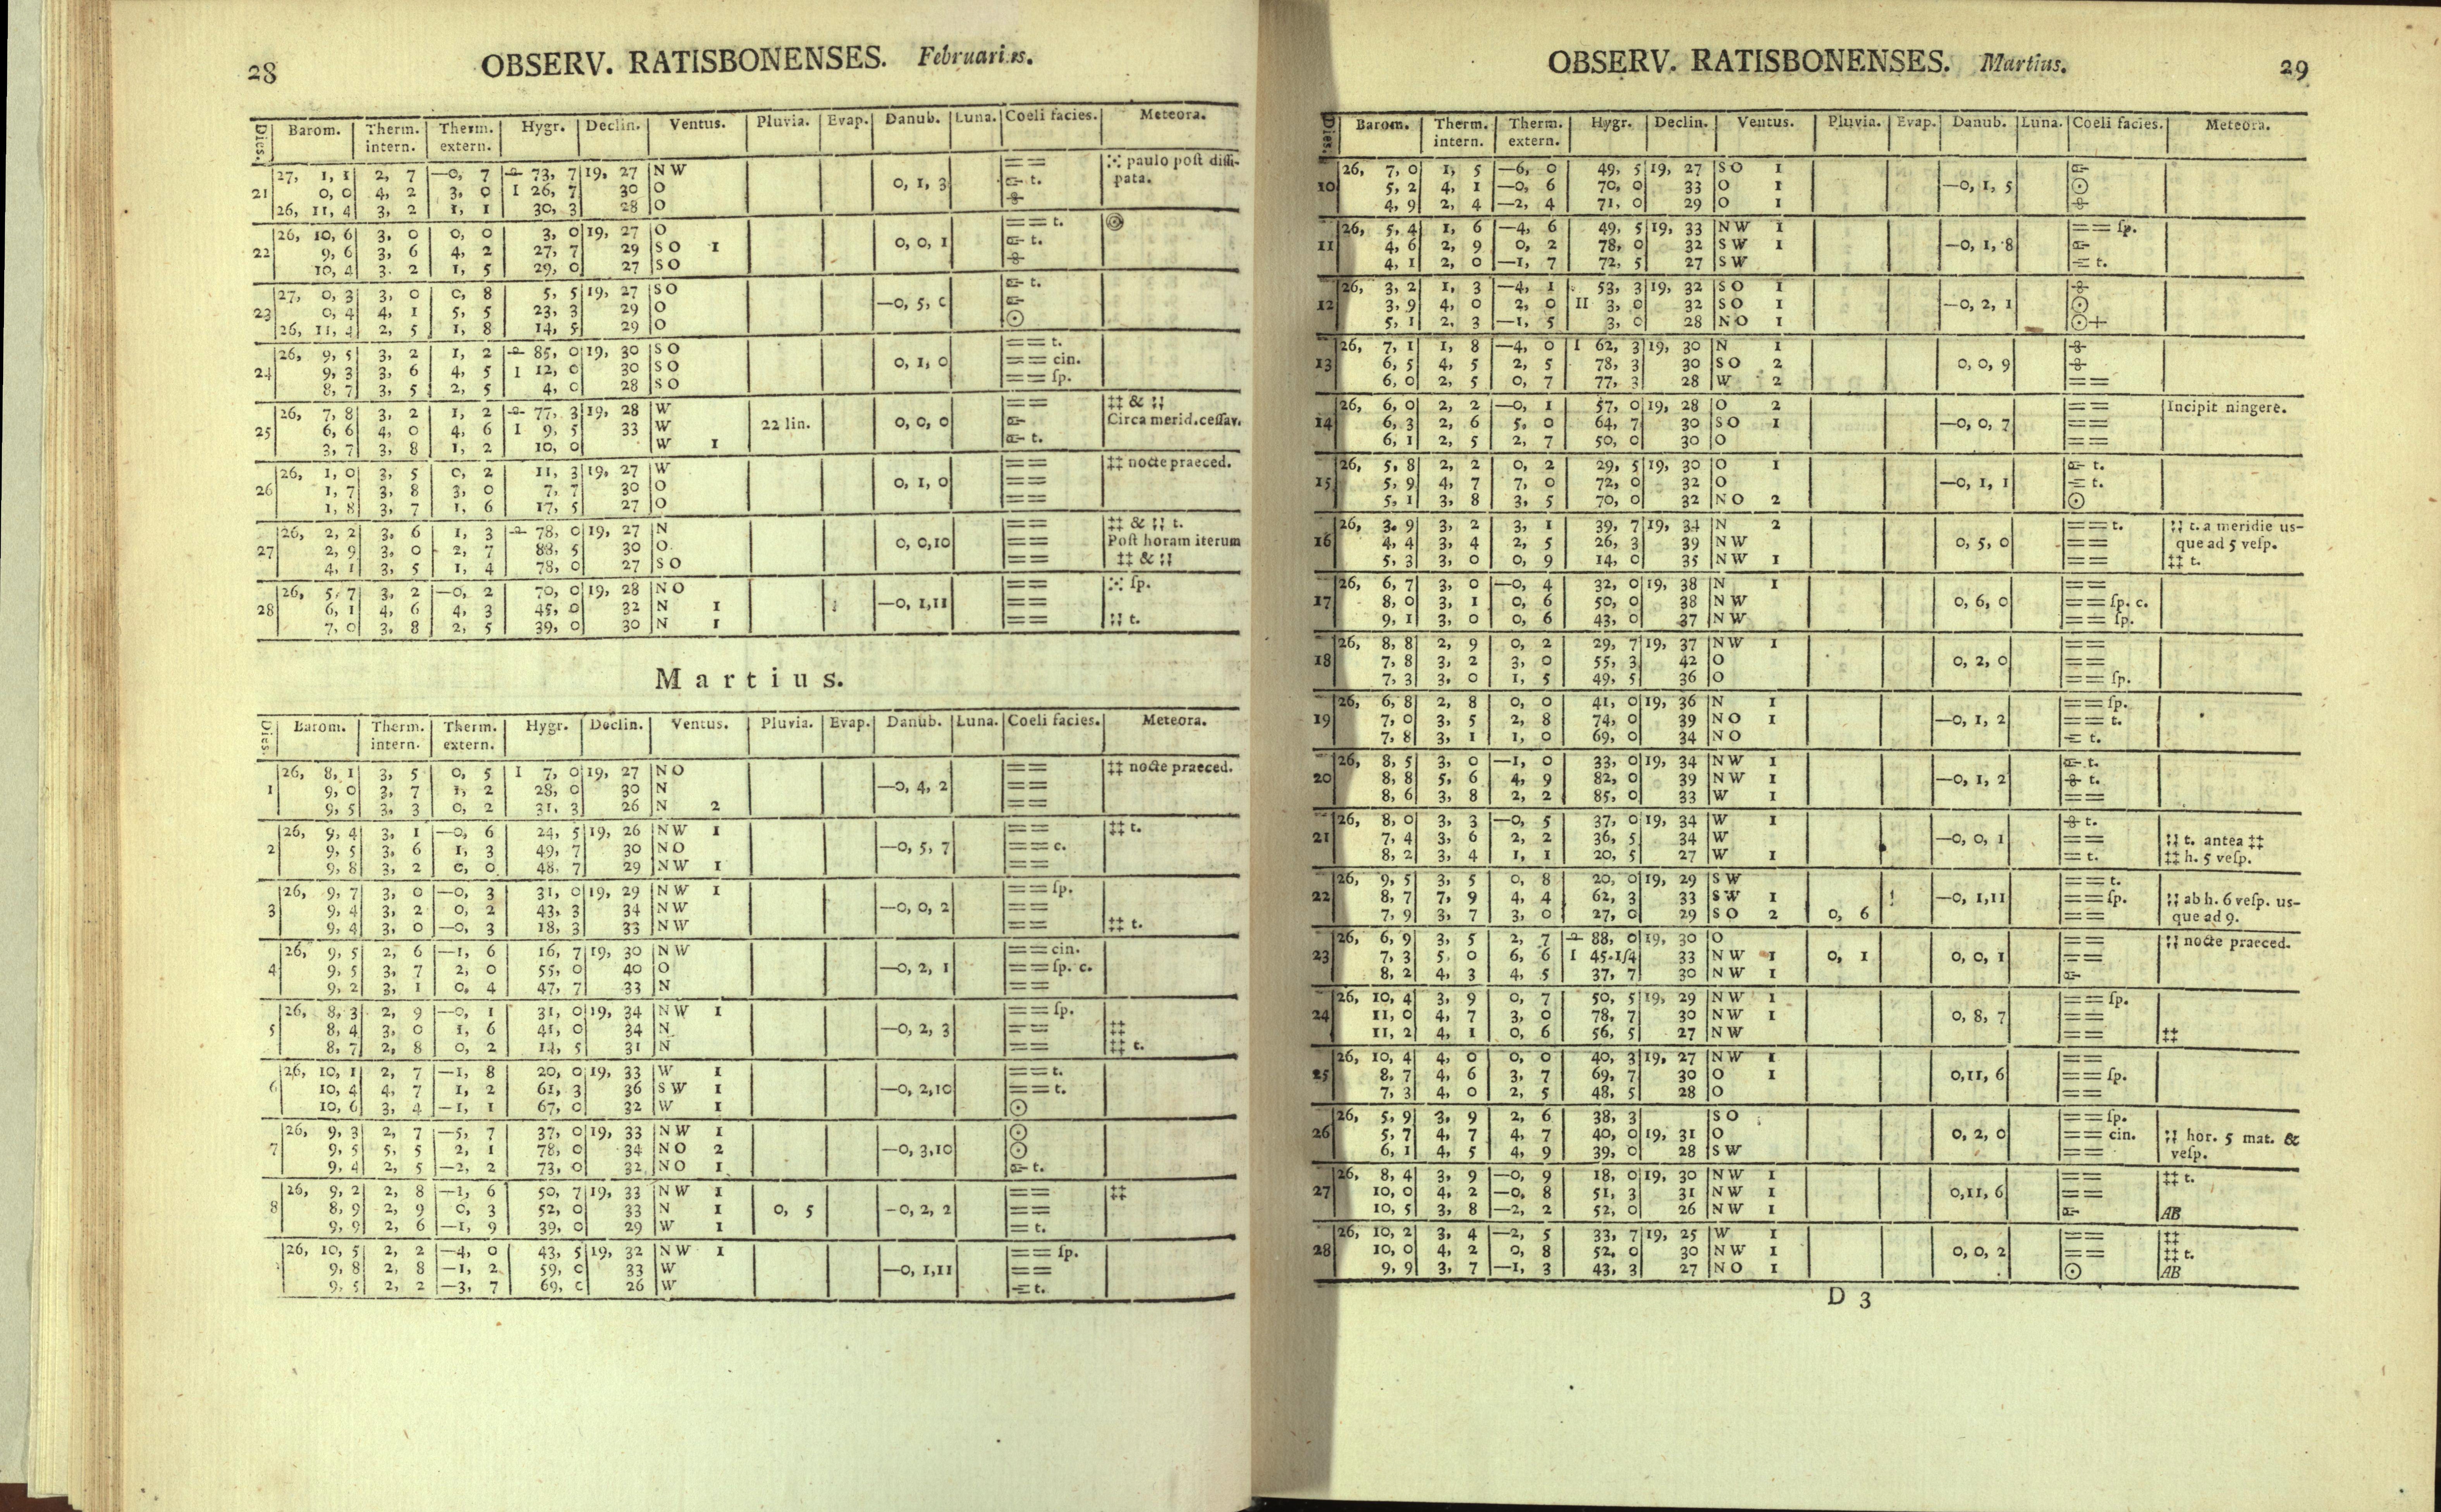 28 OBSERV. RATISBONENSES. Februarius.
Dies. Barom. Therm. intern. Therm. extern. Hygr. Declin. Ventus. Pluvia. Evap. Danub. Luna. Coeli facies. Meteora.
27, 1, 1 2, 7 —0, 7 73, 7 19, 27 NW == paulo poſt diſſi-
21 0, 0 4, 2 3, 0 I 26, 7 30 O 0, 1, 3 t. pata.
26, 11, 4 3, 2 1, 1 30, 3 28 O
26, 10, 6 3, 0 0, 0 3, 0 19, 27 O == t.
22 9, 6 3, 6 4, 2 27, 7 29 SO 1 0, 0, 1 t.
10, 4 3, 2 1, 5 29, 0 27 SO
27, 0, 3 3, 0 0, 8 5, 5 19, 27 SO t.
23 0, 4 4, 1 5, 5 23, 3 29 O —0, 5, 0
26, 11, 4 2, 5 1, 8 14, 5 29 O ⊙
26, 9, 5 3, 2 1, 2 85, 0 19, 30 SO == t.
24 9, 3 3, 6 4, 5 I 12, 0 30 SO 0, 1, 0 == cin.
8, 7 3, 5 2, 5 4, 0 28 SO == ſp.
26, 7, 8 3, 2 1, 2 77, 3 19, 28 W == ‡‡ & ¦¦
25 6, 6 4, 0 4, 6 I 9, 5 33 W 22 lin. 0, 0, 0 Circa merid. ceſſav.
3, 7 3, 8 1, 2 10, 0 W 1 t.
26, 1, 0 3, 5 0, 2 11, 3 19, 27 W == ‡‡ nocte praeced.
26 1, 7 3, 8 3, 0 7, 7 30 O 0, 1, 0 ==
1, 8 3, 7 1, 6 17, 5 27 O ==
26, 2, 2 3, 6 1, 3 78, 0 19, 27 N == ‡‡ & ¦¦ t.
27 2, 9 3, 0 2, 7 88, 5 30 O 0, 0,10 == Poſt horam iterum
4, 1 3, 5 1, 4 78, 0 27 SO == ‡‡ & ¦¦
26, 5, 7 3, 2 —0, 2 70, 0 19, 28 NO == ſp.
28 6, 1 4, 6 4, 3 45, 0 32 N 1 —0, 1,11 ==
7, 0 3, 8 2, 5 39, 0 30 N 1 == ¦¦ t.
Martius.
Dies. Barom. Therm. intern. Therm. extern. Hygr. Declin. Ventus. Pluvia. Evap. Danub. Luna. Coeli facies. Meteora.
26, 8, 1 3, 5 0, 5 I 7, 0 19, 27 NO == ‡‡ nocte praeced.
1 9, 0 3, 7 1, 2 28, 0 30 N —0, 4, 2 ==
9, 5 3, 3 0, 2 31, 3 26 N 2 ==
26, 9, 4 3, 1 —0, 6 24, 5 19, 26 NW 1 == ‡‡ t.
2 9, 5 3, 6 1, 3 49, 7 30 NO —0, 5, 7 == c.
9, 8 3, 2 0, 0 48, 7 29 NW 1 ==
26, 9, 7 3, 0 —0, 3 31, 0 19, 29 NW 1 == ſp.
3 9, 4 3, 2 0, 2 43, 3 34 NW —0, 0, 2 ==
9, 4 3, 0 —0, 3 18, 3 33 NW == ‡‡ t.
26, 9, 5 2, 6 —1, 6 16, 7 19, 30 NW == cin.
4 9, 5 3, 7 2, 0 55, 0 40 O —0, 2, 1 == ſp. c.
9, 2 3, 1 0, 4 47, 7 33 N ==
26, 8, 3 2, 9 —0, 1 31, 0 19, 34 NW 1 == ſp.
5 8, 4 3, 0 1, 6 41, 0 34 N —0, 2, 3 == ‡‡
8, 7 2, 8 0, 2 14, 5 31 N == ‡‡ t.
26, 10, 1 2, 7 —1, 8 20, 0 19, 33 W 1 == t.
6 10, 4 4, 7 1, 2 61, 3 36 SW 1 —0, 2,10 == t.
10, 6 3, 4 —1, 1 67, 0 32 W 1 ⊙
26, 9, 3 2, 7 —5, 7 37, 0 19, 33 NW 1 ⊙
7 9, 5 5, 5 2, 1 78, 0 34 NO 2 —0, 3,10 ⊙
9, 4 2, 5 —2, 2 73, 0 32 NO 1 t.
26, 9, 2 2, 8 —1, 6 50, 7 19, 33 NW 1 == ‡‡
8 8, 9 2, 9 0, 3 52, 0 33 N 1 0, 5 —0, 2, 2 ==
9, 9 2, 6 —1, 9 39, 0 29 W 1 = t.
26, 10, 5 2, 2 —4, 0 43, 5 19, 32 NW 1 == ſp.
9, 8 2, 8 —1, 2 59, 0 33 W —0, 1,11 ==
9, 5 2, 2 —3, 7 69, 0 26 W = t.
OBSERV. RATISBONENSES. Martius. 29
Dies. Barom. Therm. intern. Therm. extern. Hygr. Declin. Ventus. Pluvia. Evap. Danub. Luna. Coeli facies. Meteora.
26, 7, 0 1, 5 —6, 0 49, 5 19, 27 SO 1
10 5, 2 4, 1 —0, 6 70, 0 33 O 1 —0, 1, 5 ⊙
4, 9 2, 4 —2, 4 71, 0 29 O 1
26, 5, 4 1, 6 —4, 6 49, 5 19, 33 NW 1 == ſp.
11 4, 6 2, 9 0, 2 78, 0 32 SW 1 —0, 1, 8
4, 1 2, 0 —1, 7 72, 5 27 SW = t.
26, 3, 2 1, 3 —4, 1 53, 3 19, 32 SO 1
12 3, 9 4, 0 2, 0 II 3, 0 32 SO 1 —0, 2, 1 ⊙
5, 1 2, 3 —1, 5 3, 0 28 NO 1 ⊙+
26, 7, 1 1, 8 —4, 0 I 62, 3 19, 30 N 1
13 6, 5 4, 5 2, 5 78, 3 30 SO 2 0, 0, 9
6, 0 2, 5 0, 7 77, 3 28 W 2 ==
26, 6, 0 2, 2 —0, 1 57, 0 19, 28 O 2 == Incipit ningere.
14 6, 3 2, 6 5, 0 64, 7 30 SO 1 —0, 0, 7 ==
6, 1 2, 5 2, 7 50, 0 30 O ==
26, 5, 8 2, 2 0, 2 29, 5 19, 30 O 1 t.
15 5, 9 4, 7 7, 0 72, 0 32 O —0, 1, 1 = t.
5, 1 3, 8 3, 5 70, 0 32 NO 2 ⊙
26, 3, 9 3, 2 3, 1 39, 7 19, 34 N 2 == t. ¦¦ t. a meridie us-
16 4, 4 3, 4 2, 5 26, 3 39 NW 0, 5, 0 == que ad 5 veſp.
5, 3 3, 0 0, 9 14, 0 35 NW 1 == ‡‡ t.
26, 6, 7 3, 0 —0, 4 32, 0 19, 38 N 1 ==
17 8, 0 3, 1 0, 6 50, 0 38 NW 0, 6, 0 == ſp. c.
9, 1 3, 0 0, 6 43, 0 37 NW == ſp.
26, 8, 8 2, 9 0, 2 29, 7 19, 37 NW 1 ==
18 7, 8 3, 2 3, 0 55, 3 42 O 0, 2, 0 ==
7, 3 3, 0 1, 5 49, 5 36 O == ſp.
26, 6, 8 2, 8 0, 0 41, 0 19, 36 N 1 == ſp.
19 7, 0 3, 5 2, 8 74, 0 39 NO 1 —0, 1, 2 == t.
7, 8 3, 1 1, 0 69, 0 34 NO = t.
26, 8, 5 3, 0 —1, 0 33, 0 19, 34 NW 1 t.
20 8, 8 5, 6 4, 9 82, 0 39 NW 1 —0, 1, 2 t.
8, 6 3, 8 2, 2 85, 0 33 W 1 ==
26, 8, 0 3, 3 —0, 5 37, 0 19, 34 W 1 t.
21 7, 4 3, 6 2, 2 36, 5 34 W —0, 0, 1 == ¦¦ t. antea ‡‡
8, 2 3, 4 1, 1 20, 5 27 W 1 = t. ‡‡ h. 5 veſp.
26, 9, 5 3, 5 0, 8 20, 0 19, 29 SW == t.
22 8, 7 7, 9 4, 4 62, 3 33 SW 1 —0, 1,11 == ſp. ¦¦ ab h. 6 veſp. us-
7, 9 3, 7 3, 0 27, 0 29 SO 2 0, 6 == que ad 9.
26, 6, 9 3, 5 2, 7 88, 0 19, 30 O == ¦¦ nocte praeced.
23 7, 3 5, 0 6, 6 I 45.1/4 33 NW 1 0, 1 0, 0, 1 ==
8, 2 4, 3 4, 5 37, 7 30 NW 1
26, 10, 4 3, 9 0, 7 50, 5 19, 29 NW 1 == ſp.
24 11, 0 4, 7 3, 0 78, 7 30 NW 1 0, 8, 7 ==
11, 2 4, 1 0, 6 56, 5 27 NW == ‡‡
26, 10, 4 4, 0 0, 0 40, 3 19, 27 NW 1 ==
25 8, 7 4, 6 3, 7 69, 7 30 O 1 0,11, 6 == ſp.
7, 3 4, 0 2, 5 48, 5 28 O ==
26, 5, 9 3, 9 2, 6 38, 3 SO == ſp.
26 5, 7 4, 7 4, 7 40, 0 19, 31 O 0, 2, 0 == cin. ¦¦ hor. 5 mat. &
6, 1 4, 5 4, 9 39, 0 28 SW == veſp.
26, 8, 4 3, 9 —0, 9 18, 0 19, 30 NW 1 == ‡‡ t.
27 10, 0 4, 2 —0, 8 51, 3 31 NW 1 0,11, 6 ==
10, 5 3, 8 —2, 2 52, 0 26 NW 1 AB
26, 10, 2 3, 4 —2, 5 33, 7 19, 25 W 1 == ‡‡
28 10, 0 4, 2 0, 8 52, 0 30 NW 1 0, 0, 2 == ‡‡ t.
9, 9 3, 7 —1, 3 43, 3 27 NO 1 ⊙ AB
D 3